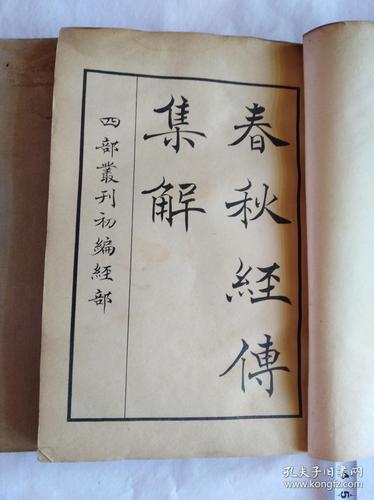 春秋經傳
集解
四部叢刊初編經部
孔夫子旧书网